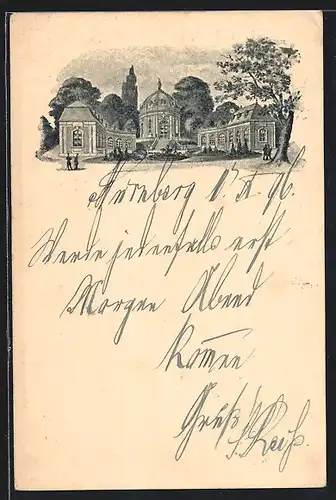 Nürnberg 17. X 96.
Werde jedenfalls erst
Morgen Abend
komen
Gruß